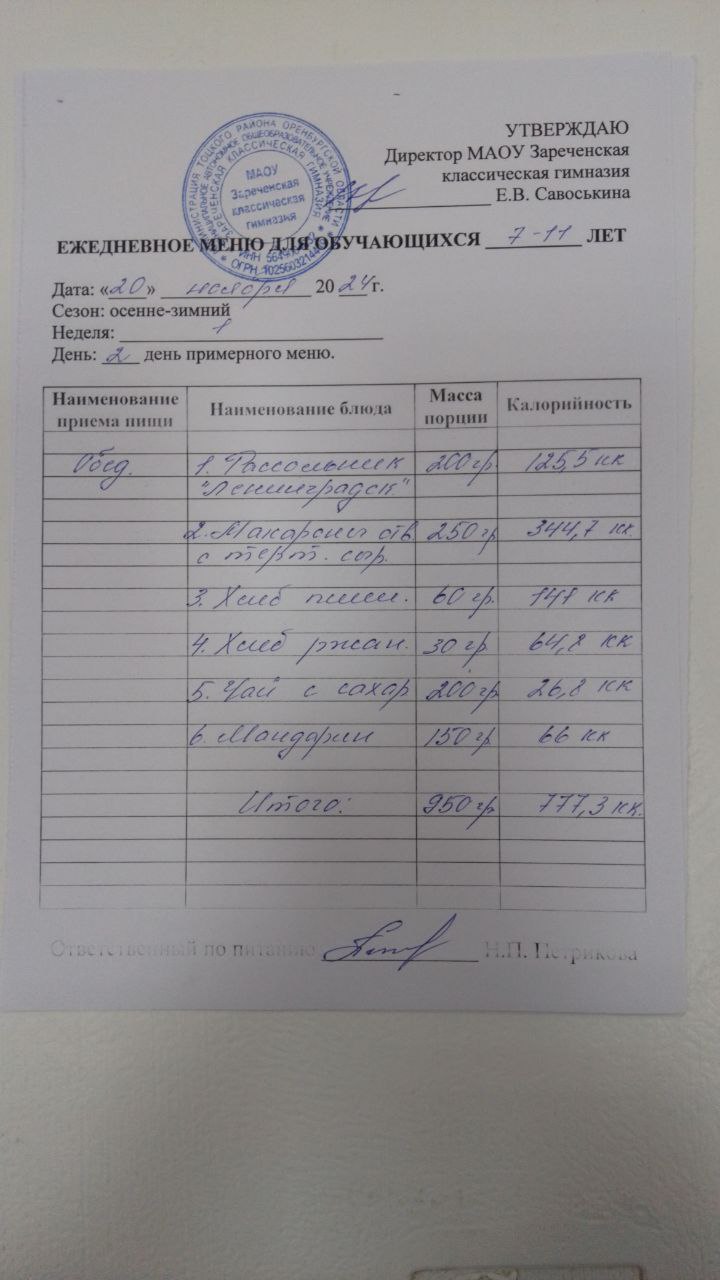 УТВЕРЖДАЮ
Директор МАОУ Зареченская
классическая гимназия
Е.В. Савоськина
АДМИНИСТРАЦИЯ ТОЦКОГО РАЙОНА ОРЕНБУРГСКОЙ ОБЛАСТИ
ЗАРЕЧЕНСКАЯ КЛАССИЧЕСКАЯ ГИМНАЗИЯ
МАОУ
Зареченская
классическая
гимназия
ЕЖЕДНЕВНОЕ МЕНЮ ДЛЯ ОБУЧАЮЩИХСЯ 7-11 ЛЕТ
Дата: «20» ноября 20 24 г.
Сезон: осенне-зимний
Неделя: 1
День: 2 день примерного меню.
Наименование приема пищи Наименование блюда Масса порции Калорийность
Обед. 1. Рассольник 200 гр. 125,5 кк
"Ленинградск"
2. Макароны отв. 250 гр 344,7 кк.
с терт. сыр.
3. Хлеб пшен. 60 гр. 141 кк
4. Хлеб ржан. 30 гр. 64,8 кк
5. Чай с сахар 200 гр 26,8 кк
6. Мандарин 150 гр 66 кк
Итого: 950 гр 777,3 кк.
Ответственный по питанию Н.П. Петрикова